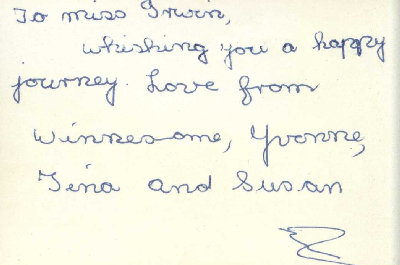 To miss Irwin,
whishing you a happy
journey. Love from
Winnesome, Yvonne,
Tina and Susan